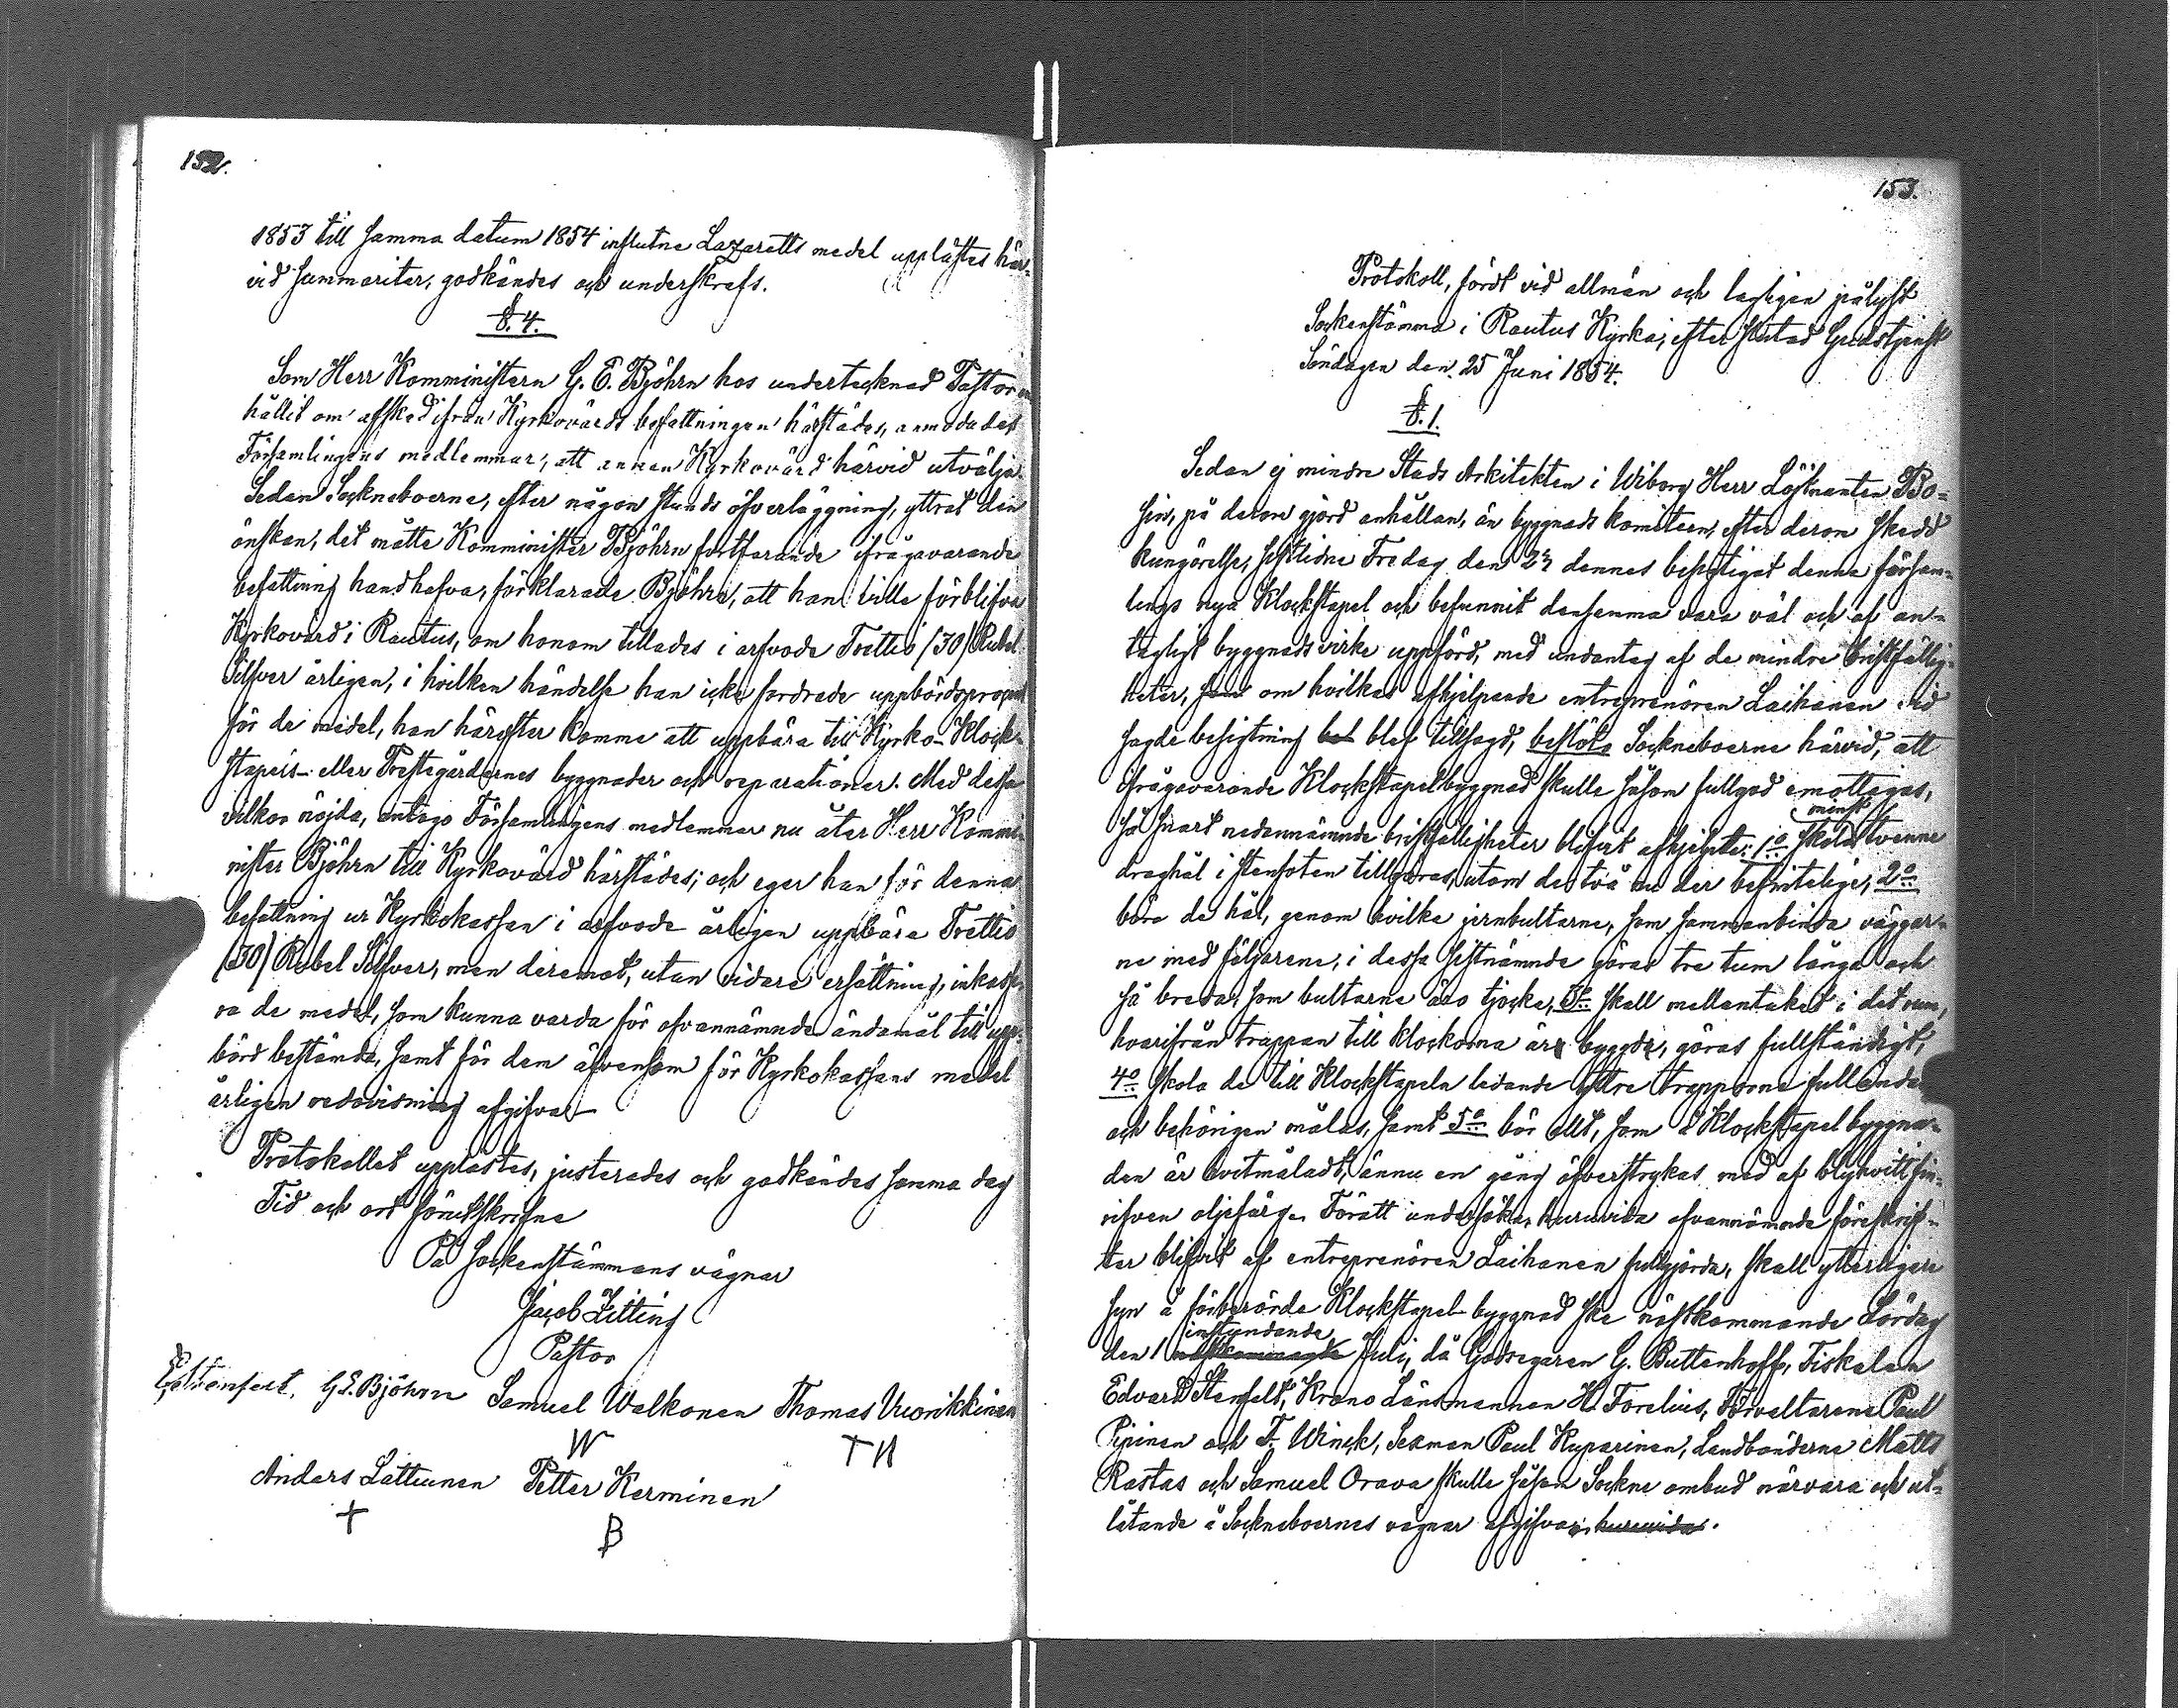 152.
1853 till samma datum 1854 influtne Lazaretts medel upplästes här-
vid summariter, godkändes och underskrefs.
§. 4.
Som Herr Komministern G. E. Björhn hos undertecknad Pastor an
hållit om afsked ifrån Kyrkovärds befattningen härstädes, anmodades
Församlingens medlemmar, att annan Kyrkovärd härvid utvälja.
Sedan Sockneboerne, efter någon stunds öfverläggning, yttrat den
önskan, det måtte Komminister Björhn fortfarande ifrågavarande
befattning handhafva, förklarade Björhn, att han ville förblifva
Kyrkovärd i Rautus, om honom tillades i arfvode Trettio /30/ Rubel
Silfver årligen, i hvilken händelse han icke fordrade uppbördsprocent
för de medel, han härefter komme att uppbära till Kyrko- Klock-
stapels- eller Prestegårdarnes byggnader och reparationer. Med dessa
vilkor nöjda, antogo Församlingens medlemmar nu åter Herr Kommi-
nister Björhn till Kyrkovärd härstädes; och eger han för denna
befattning ur Kyrkokassan i arfvode årligen uppbära Trettio
/30/ Rubel Silfver, men deremot, utan vidare ersättning, inkasse-
ra de medel, som kunna varda för ofvannämnde ändamål till upp-
börd bestämda, samt för dem äfvensom för Kyrkokassans medel
årligen redovisning afgifva.
Protokollet upplästes, justerades och godkändes samma dag
Tid och ort förutskrifne
På Sockenstämmans vägnar
Jacob Zitting
Pastor
G.E. Björhn Samuel Walkonen Thomas Vuorikkinen
W TH
Anders Lättiunen Petter Kerminen
+ B
153.
Protokoll, fördt vid allmän och lagligen pålyst
Sockenstämma i Rautus Kyrka, efter slutad Gudstjenst
Söndagen den 25 Juni 1854.
§. 1.
Sedan ej mindre Stads Arkitekten i Wiborg Herr Löjtnanten Bo-
sin, på derom gjord anhållan, än byggnads komiteen, efter derom skedd
kungörelse, sistlidne Fredag den 23 dennes besigtigat denna försam-
lings nya Klockstapel och befunnit densamma vara väl och af an-
tagligt byggnadsvirke uppförd, med undantag af de mindre bristfällig-
heter, som om hvilkas afhjelpande entreprenören Laihanen vid
sagde besigtning bel blef tillsagd, beslöto Sockneboerne härvid, att
ifrågavarande Klockstapelbyggnad skulle såsom fullgod emottagas,
minst
så snart nedannämnde bristfälligheter blifvit afhjelpte: 1o skola tvenne
draghål i stenfoten tillgöras, utom de två nu der befintelige, 2o
böra de hål, genom hvilke jernbultarne, som sammanbinda väggar-
ne med följarene, i dessa sistnämnde göras tre tum långa och
så breda, som bultarne äro tjocke, 3o skall mellantaket i det rum,
hvarifrån trappan till klockorna är byggd, göras fullständigt,
4o skola de till Klockstapeln ledande yttre trapporna fullända
och behörigen målas, samt 5o bör allt, som å Klockstapel byggna-
den är hvitmåladt, ännu en gång öfverstrykas med af blyhvitt fin-
rifven oljefärg. Föratt undersöka, huruvida ofvannämnde föreskrif-
ter blifvit af entreprenören Laihanen fullgjorda, skall ytterligare
syn å förberörde Klockstapel byggnad ske nästkommande Lördag
instundande
den 1 nästkommande Juli, då Godsegaren G. Buttenhoff, Fiskalen
Edvard Stenfelt, Krono Länsmannen H. Forelius, Förvaltarene Paul
Pipinen och F. Winck, Sexman Paul Kuparinen, Landbönderne Matts
Rastas och Samuel Orava skulle såsom Sockne ombud närvara och ut-
låtande å Sockneboernes vägnar afgifva, huruvida.